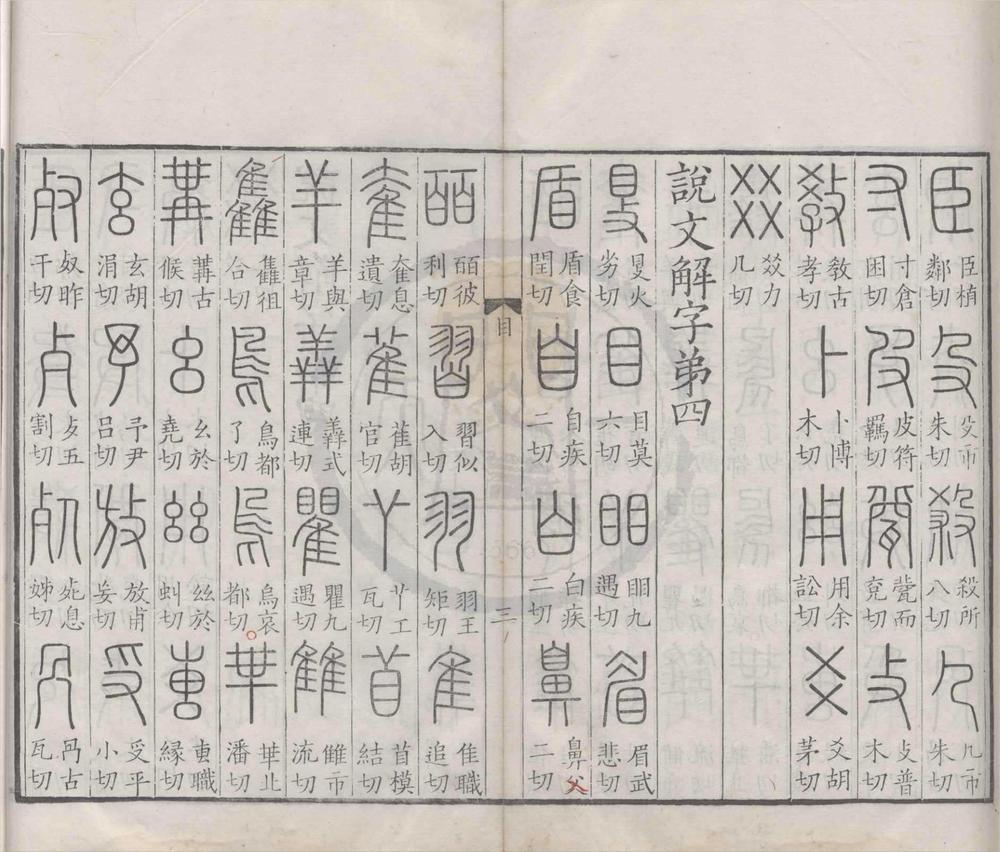 臣 臣植鄰切 殳 殳市朱切 殺 殺所八切 几 几市朱切
寸 寸倉困切 皮 皮符羈切 㼱 㼱而兗切 攴 攴普木切
敎 敎古孝切 卜 卜博木切 用 用余訟切 爻 爻胡茅切
㸚 㸚力几切
說文解字弟四
𥄎 𥄎火劣切 目 目莫六切 䀠 䀠九遇切 眉 眉武悲切
盾 盾食閏切 自 自疾二切 白 白疾二切 鼻 鼻父二切
目 三
皕 皕彼利切 習 習似入切 羽 羽王矩切 隹 隹職追切
奞 奞息遺切 雈 雈胡官切 𦫳 𦫳工瓦切 𥄕 𥄕模結切
羊 羊與章切 羴 羴式連切 瞿 瞿九遇切 雔 雔市流切
雥 雥徂合切 鳥 鳥都了切 烏 烏哀都切 𠦒 𠦒北潘切
冓 冓古候切 幺 幺於堯切 𢆶 𢆶於虯切 叀 叀職緣切
玄 玄胡涓切 予 予尹吕切 放 放甫妄切 𠬪 𠬪平小切
𣦼 𣦼昨干切 歺 歺五割切 死 死息姊切 冎 冎古瓦切